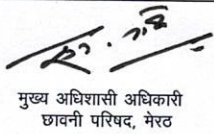 मुख्य अधिशासी अधिकारी
छावनी परिषद, मेरठ